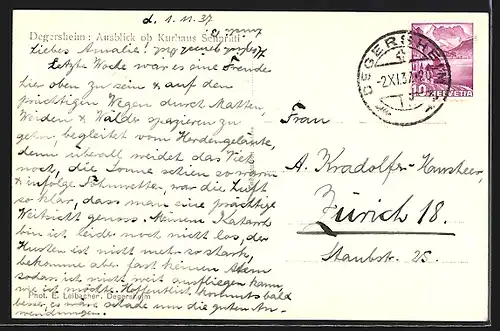 d. 1. 11. 37.
Degersheim: Ausblick ob Kurhaus Sennrüti
Liebes Amalie!
Letzte Woche war es eine Freude
hier oben zu sein & auf den
prächtigen Wegen durch Matten,
Weiden & Wälder spazieren zu
gehn, begleitet vom Herdengeläute,
denn überall weidet das Vieh
noch, die Sonne schien so warm
& infolge Schneewetter war die Luft
so klar, dass man eine prächtige
Weitsicht genoss. Meinen Katarrh
bin ich leider noch nicht los, der
Husten ist nicht mehr so stark,
bekomme aber fast keinen Atem
sodass ich nicht weit ausfliegen kann,
wie ich möchte. Hoffentlich kommts bald
besser, es wäre schade um die guten An-
wendungen.
Phot. E. Leibacher, Degersheim
DEGERSHEIM
-2.XI.37.
10 HELVETIA
Frau
A. Kradolfer-Hausheer,
Zürich 18.
Staubstr. 25.